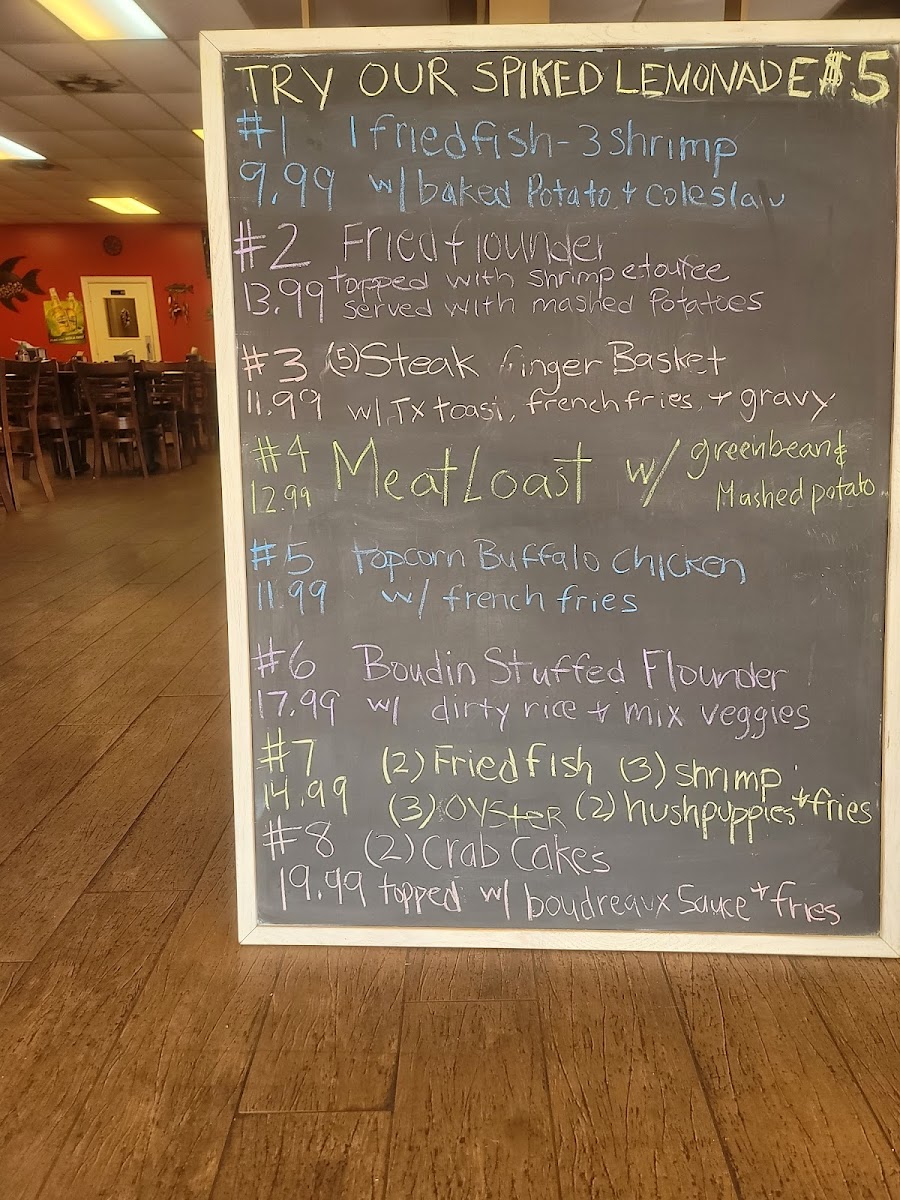 TRY OUR SPIKED LEMONADE $5
#1 1 fried fish - 3 shrimp
9.99 w/ baked Potato + coleslaw
#2 Fried flounder
topped with shrimp etoufee
13.99 served with mashed Potatoes
#3 (5) Steak finger Basket
11.99 w/ Tx toast, french fries, + gravy
#4 MeatLoast w/ greenbean &
12.99 Mashed potato
#5 Popcorn Buffalo chicken
11.99 w/ french fries
#6 Boudin Stuffed Flounder
17.99 w/ dirty rice + mix veggies
#7 (2) Fried fish (3) shrimp
14.99 (3) OYSTER (2) hushpuppies + fries
#8 (2) Crab Cakes
19.99 topped w/ boudreaux Sauce + fries